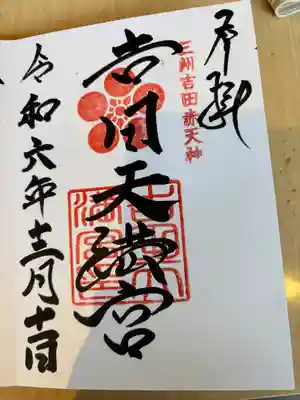 奉拝
三州吉田天神
吉田天満宮
令和六年十二月十一日